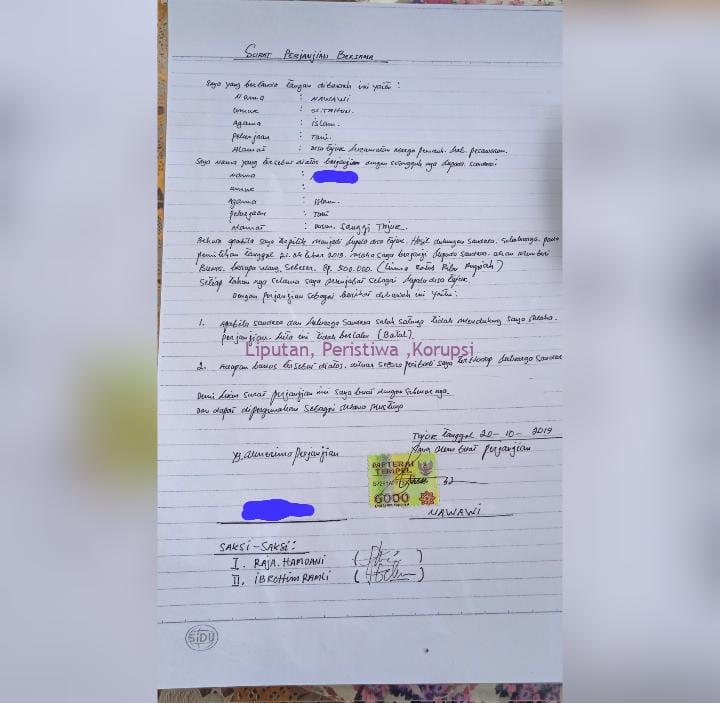 SURAT PERJANJIAN BERSAMA
Saya yang bertanda tangan dibawah ini yaitu :
Nama : NAWAWI
umur : TAHUN.
Agama : islam.
pekerjaan : Tani.
Alamat : Desa Tajur kecamatan Marga punduh. kab. pesawaran.
Saya Nama yang tersebut diatas berjanjian dengan sesungguh nya kepada saudara:
Nama :
umur :
Agama : Islam.
pekerjaan : Tani
Alamat : Dusun Sanggi Tajur.
Bahwa apabila saya terpilih menjadi kepala desa Tajur. Hasil dukungan saudara. sekeluarga. pada
pemilihan tanggal 21. oktober 2019. maka saya berjanji kepada saudara. akan memberi
Bonus. berupa uang sebesar. Rp. 500.000. (Lima Ratus Ribu Rupiah)
Setiap tahun nya selama saya menjabat sebagai kepala desa Tajur.
Dengan perjanjian sebagai berikut dibawah ini yaitu.
1. Apabila saudara dan keluarga saudara salah satunya tidak mendukung saya maka.
perjanjian. kita ini tidak berlaku (Batal).
Liputan, Peristiwa ,Korupsi
2. Adapun bonus tersebut diatas. diluar secara peribadi saya terhadap keluarga saudara
Demi kian surat perjanjian ini saya buat dengan sebenar nya.
Dan dapat dipergunakan sebagai mana mestinya
Tajur tanggal 20-10-2019
Yg. Menerima perjanjian
Yang Membuat perjanjian
METERAI
TEMPEL
6000
NAWAWI
SAKSI-SAKSI:
I. RAJA.HAMDANI
II. IBROHIM RAMLI
SIDU